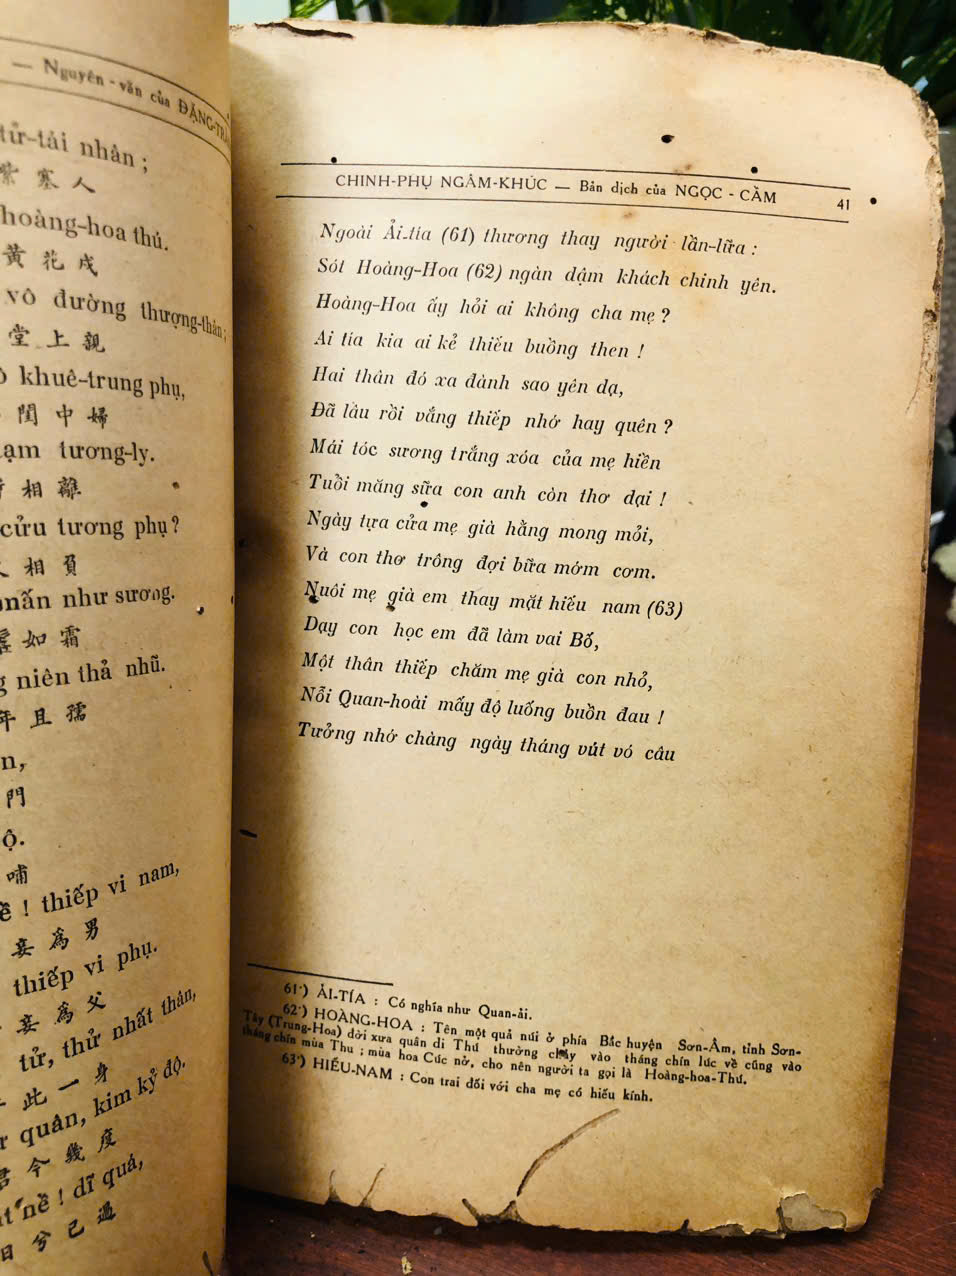 — Nguyên-văn của ĐẶNG-TRẦ
tử-tải nhân ;
紫 塞 人
hoàng-hoa thú.
黃 花 戍
vô đường thượng-thân ;
堂 上 親
khuê-trung phụ,
閨 中 婦
tương-ly.
相 離
cửu tương phụ ?
相 負
mấn như sương.
如 霜
niên thả nhũ.
年 且 孺
門
ộ.
哺
! thiếp vi nam,
妾 爲 男
thiếp vi phụ.
妾 爲 父
tử, thử nhất thân,
此 一 身
quân, kim kỷ độ.
君 今 幾 度
nề ! dĩ quá,
日 兮 已 過
CHINH-PHỤ NGÂM-KHÚC — Bản dịch của NGỌC - CẦM 41
Ngoài Ải-tía (61) thương thay người lần-lữa :
Sót Hoàng-Hoa (62) ngàn dậm khách chinh yên.
Hoàng-Hoa ấy hỏi ai không cha mẹ ?
Ải tía kia ai kẻ thiếu buồng then !
Hai thân đó xa đành sao yên dạ,
Đã lâu rồi vắng thiếp nhớ hay quên ?
Mái tóc sương trắng xóa của mẹ hiền
Tuổi măng sữa con anh còn thơ dại !
Ngày tựa cửa mẹ già hằng mong mỏi,
Và con thơ trông đợi bữa mớm cơm.
Nuôi mẹ già em thay mặt hiếu nam (63)
Dạy con học em đã làm vai Bố,
Một thân thiếp chăm mẹ già con nhỏ,
Nỗi Quan-hoài mấy độ luống buồn đau !
Tưởng nhớ chàng ngày tháng vút vó câu
61) ẢI-TÍA : Có nghĩa như Quan-ải.
62) HOÀNG-HOA : Tên một quả núi ở phía Bắc huyện Sơn-Âm, tỉnh Sơn-
Tây (Trung-Hoa) đời xưa quân đi Thú thường chảy vào tháng chín lúc về cũng vào
tháng chín mùa Thu ; mùa hoa Cúc nở, cho nên người ta gọi là Hoàng-hoa-Thú.
63) HIẾU-NAM : Con trai đối với cha mẹ có hiếu kính.